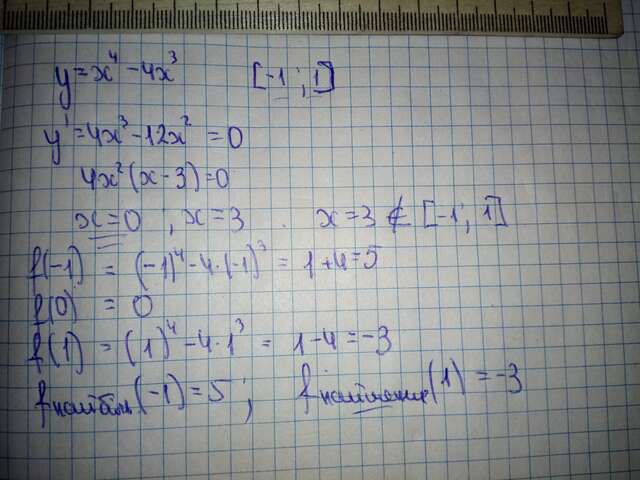 y = x⁴ - 4x³ [-1 ; 1]
y' = 4x³ - 12x² = 0
4x²(x - 3) = 0
x = 0 ; x = 3 . x = 3 ∉ [-1; 1]
f(-1) = (-1)⁴ - 4·(-1)³ = 1 + 4 = 5
f(0) = 0
f(1) = (1)⁴ - 4·1³ = 1 - 4 = -3
f (-1) = 5 ; f (1) = -3